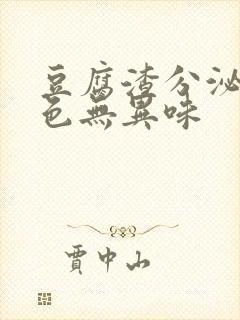 豆腐渣分泌
色無異味
賈中山